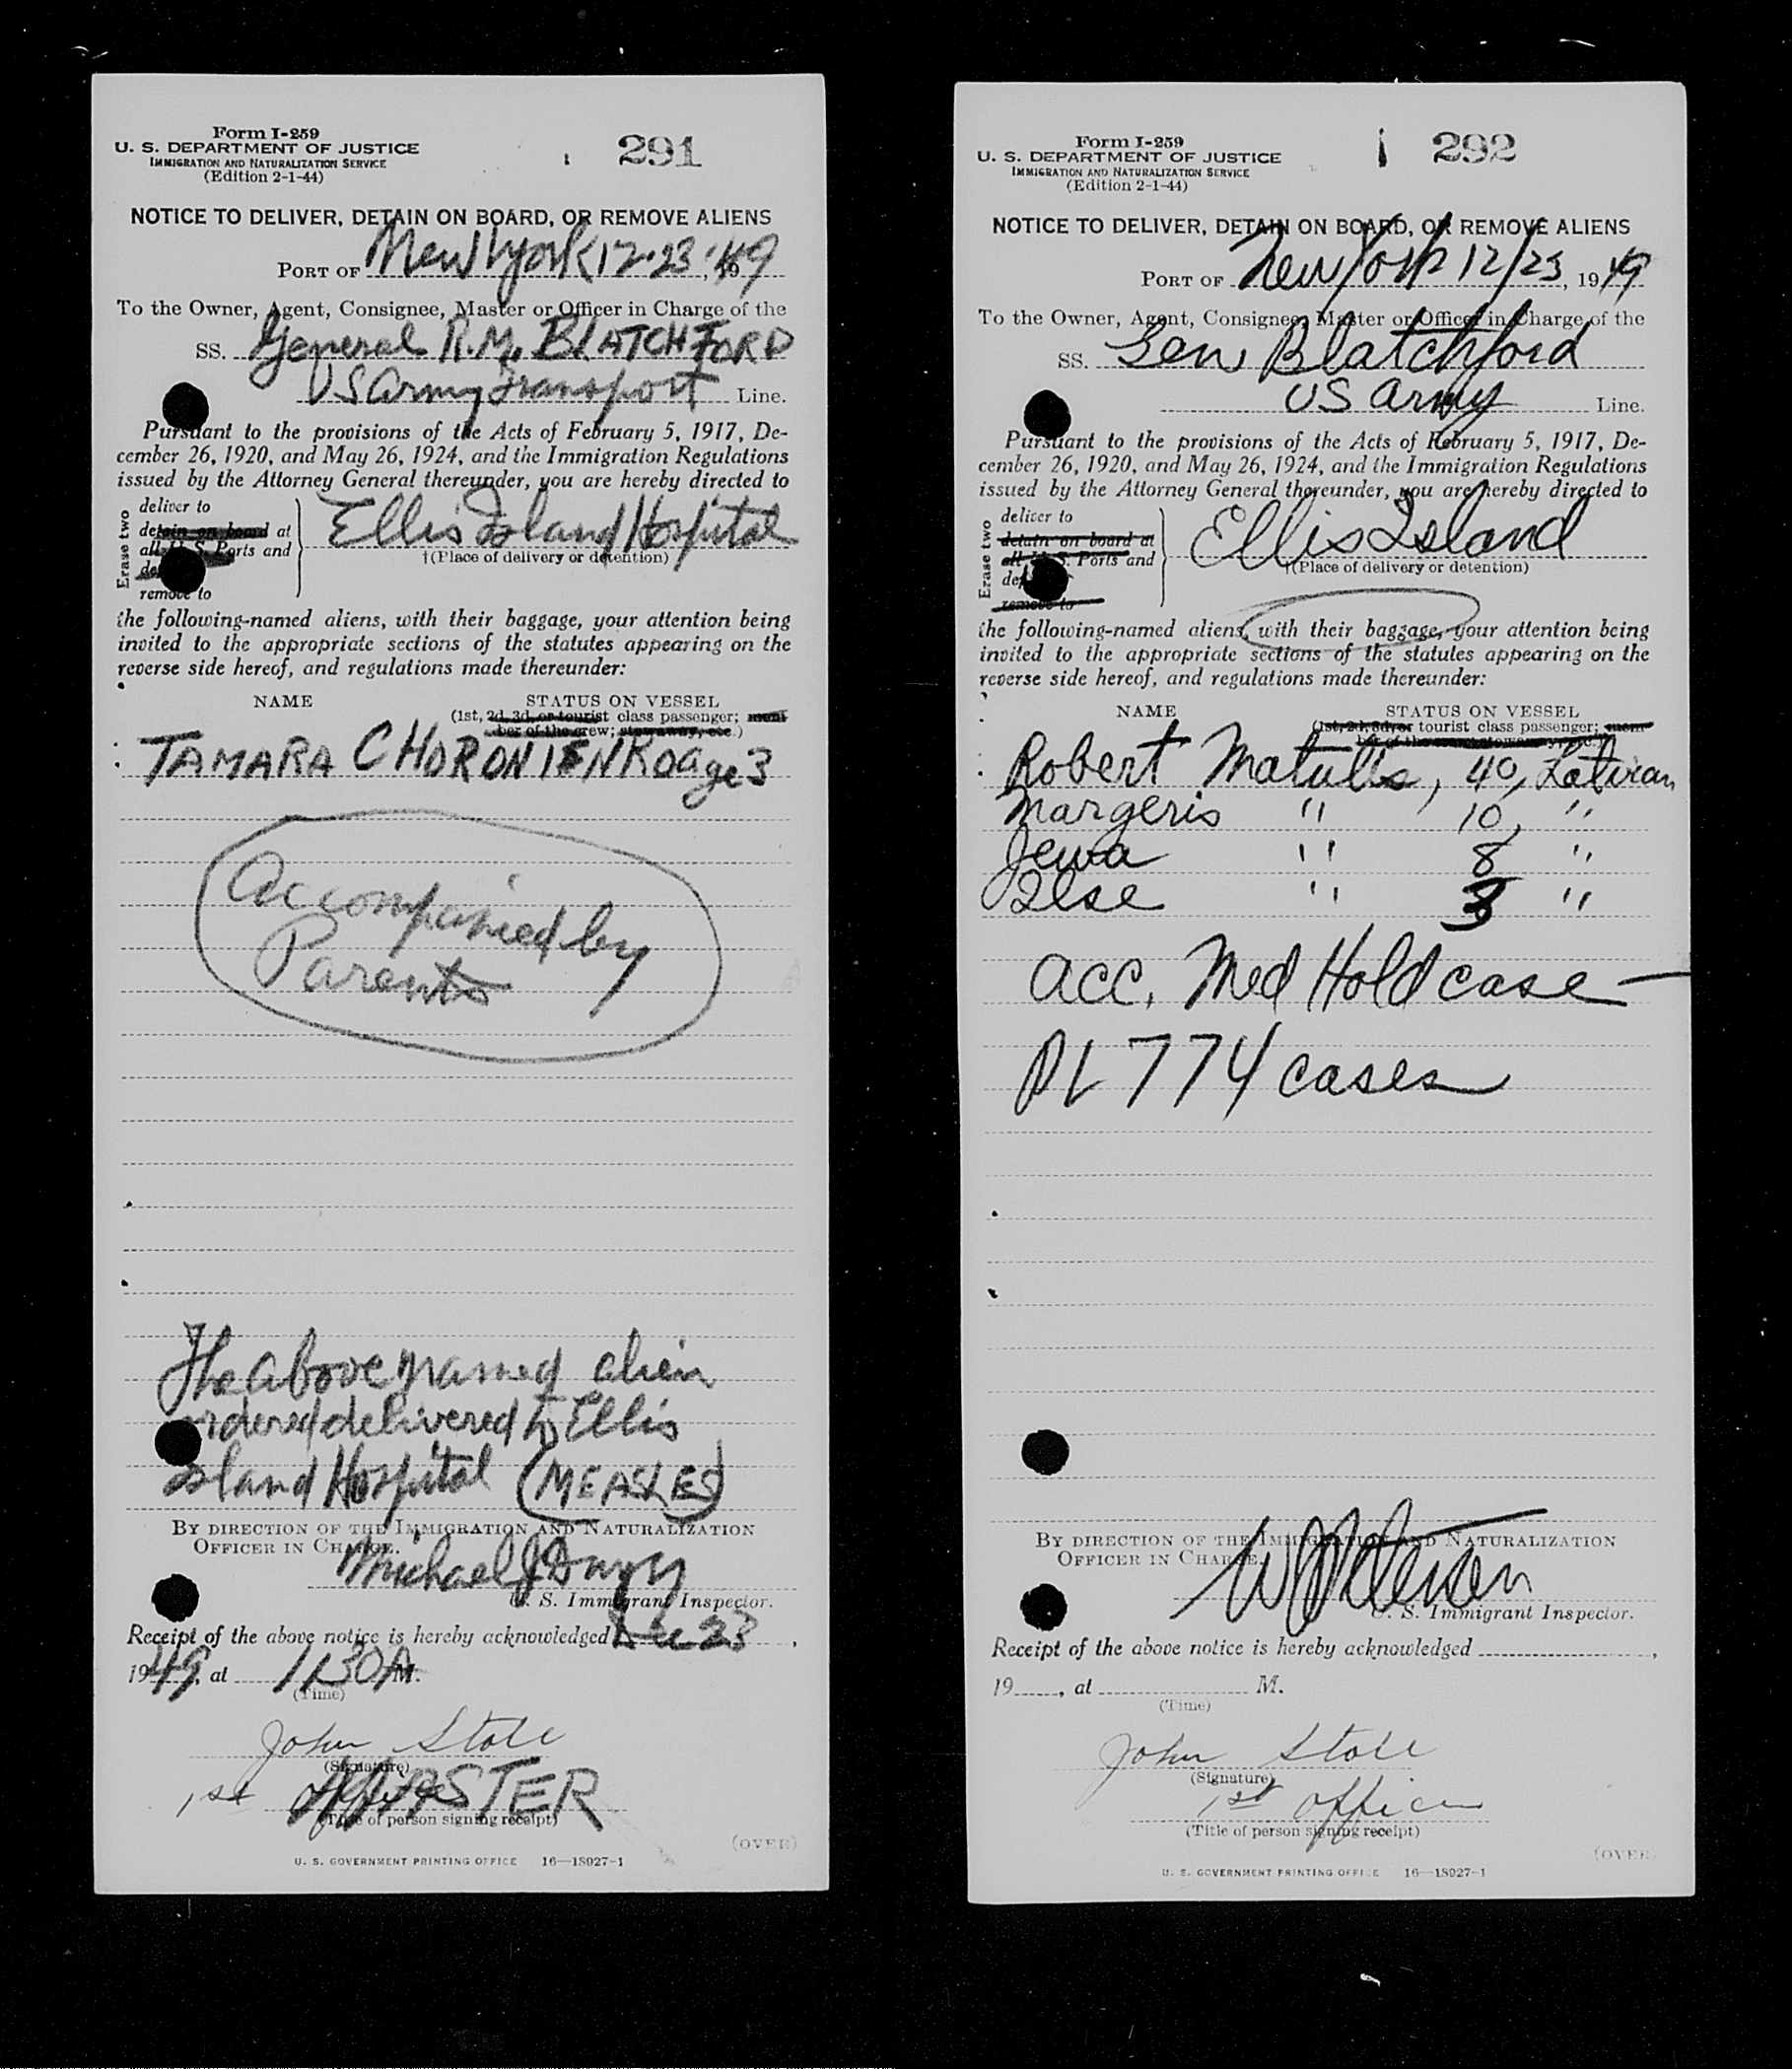 Form I-259
U. S. DEPARTMENT OF JUSTICE
IMMIGRATION AND NATURALIZATION SERVICE
(Edition 2-1-44)
291
NOTICE TO DELIVER, DETAIN ON BOARD, OR REMOVE ALIENS
PORT OF New York 12·23, '49
To the Owner, Agent, Consignee, Master or Officer in Charge of the
SS. General R.M. BLATCHFORD
US Army Transport Line.
Pursuant to the provisions of the Acts of February 5, 1917, De-
cember 26, 1920, and May 26, 1924, and the Immigration Regulations
issued by the Attorney General thereunder, you are hereby directed to
Erase two
deliver to
detain on board at
all U. S. Ports and
remove to
Ellis Island Hospital
†(Place of delivery or detention)
the following-named aliens, with their baggage, your attention being
invited to the appropriate sections of the statutes appearing on the
reverse side hereof, and regulations made thereunder:
NAME STATUS ON VESSEL
(1st, 2d, 3d, or tourist class passenger; mem-
ber of the crew; stowaway, etc.)
TAMARA CHORONIENKO age 3
Accompanied by
Parents
The above named alien
ordered delivered to Ellis
Island Hospital (MEASLES)
BY DIRECTION OF THE IMMIGRATION AND NATURALIZATION
OFFICER IN CHARGE.
Michael J.
U. S. Immigrant Inspector.
Receipt of the above notice is hereby acknowledged Dec 23,
1949, at 1130 A M.
(Time)
John Stole
(Signature)
1st officer MASTER
(Title of person signing receipt)
(OVER)
U. S. GOVERNMENT PRINTING OFFICE 16—18927-1
Form I-259
U. S. DEPARTMENT OF JUSTICE
IMMIGRATION AND NATURALIZATION SERVICE
(Edition 2-1-44)
292
NOTICE TO DELIVER, DETAIN ON BOARD, OR REMOVE ALIENS
PORT OF New York 12/23, 1949
To the Owner, Agent, Consignee, Master or Officer in Charge of the
SS. Gen Blatchford
US Army Line.
Pursuant to the provisions of the Acts of February 5, 1917, De-
cember 26, 1920, and May 26, 1924, and the Immigration Regulations
issued by the Attorney General thereunder, you are hereby directed to
Erase two
deliver to
detain on board at
all U. S. Ports and
remove to
Ellis Island
†(Place of delivery or detention)
the following-named aliens, with their baggage, your attention being
invited to the appropriate sections of the statutes appearing on the
reverse side hereof, and regulations made thereunder:
NAME STATUS ON VESSEL
(1st, 2d, 3d, or tourist class passenger; mem-
Robert Matulis, 40, Latvian
Margeris " 10, "
Jewa " 8 "
Ilse " 3 "
acc. Med Hold case —
PL 774 cases
BY DIRECTION OF THE IMMIGRATION AND NATURALIZATION
OFFICER IN CHARGE.
U. S. Immigrant Inspector.
Receipt of the above notice is hereby acknowledged ,
19 , at M.
(Time)
John Stole
(Signature)
1st officer
(Title of person signing receipt)
(OVER)
U. S. GOVERNMENT PRINTING OFFICE 16—18927-1